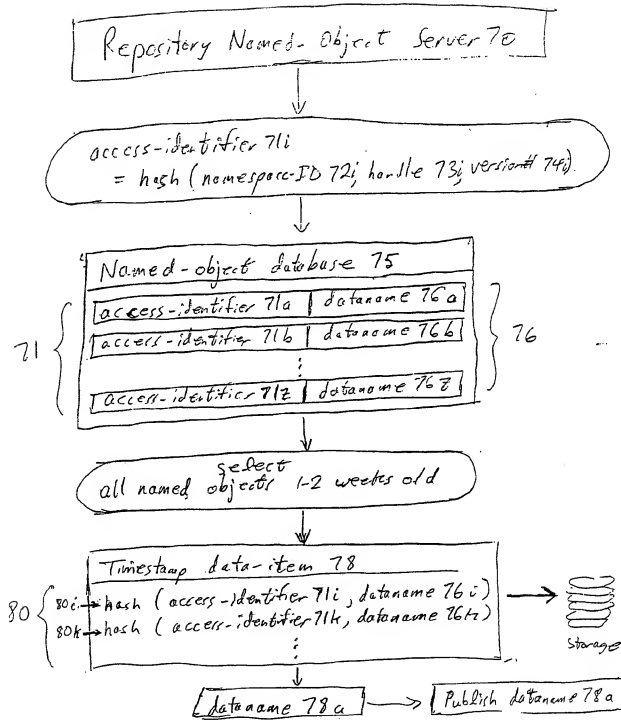 Repository Named-Object Server 70
access-identifier 71i
= hash (namespace-ID 72i, handle 73i, version# 74i)
Named-object database 75
access-identifier 71a | dataname 76a
access-identifier 71b | dataname 76b
71
76
⋮
access-identifier 71z | dataname 76z
select
all named objects 1-2 weeks old
Timestamp data-item 78
80
80i → hash (access-identifier 71i, dataname 76i)
80k → hash (access-identifier 71k, dataname 76k)
⋮
Storage
dataname 78a
Publish dataname 78a